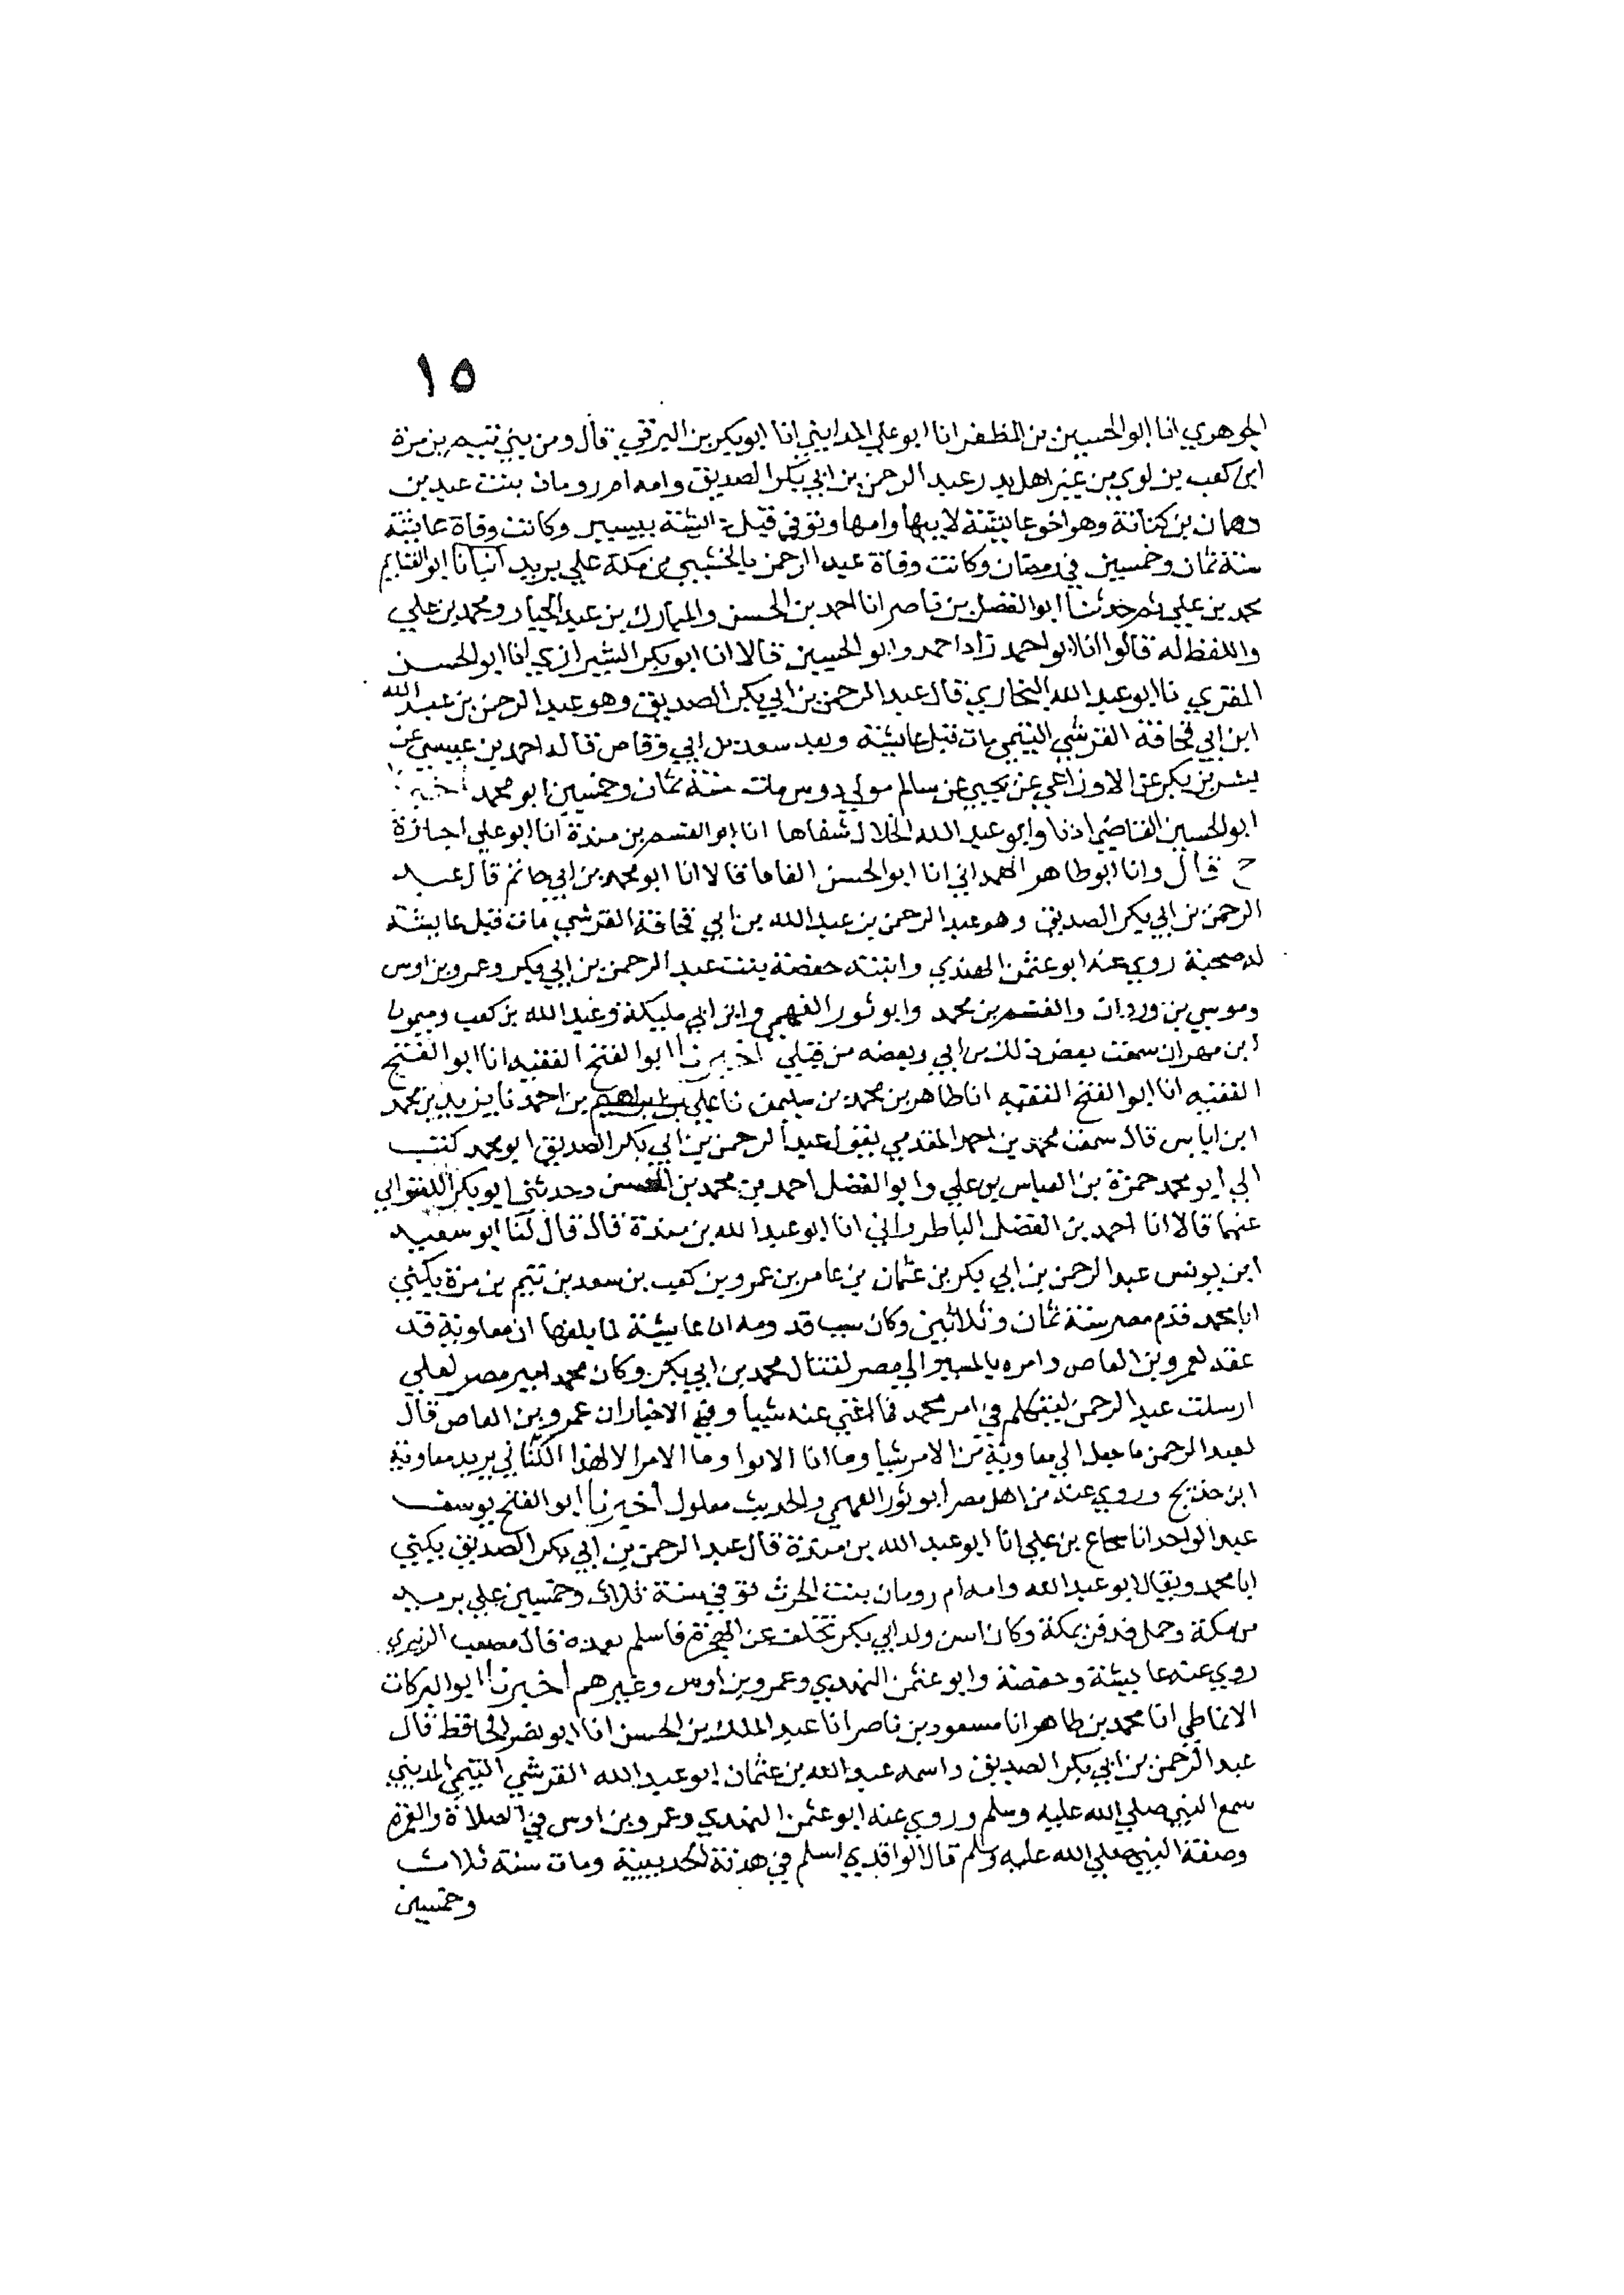 ١٥
الجوهري انا ابو الحسين بن المظفر انا ابو علي المدايني انا ابو بكر بن البرقي قال ومن بني تيم بن مرة
ابن كعب بن لوي من غير اهل بدر عبد الرحمن بن ابي بكر الصديق وامه ام رومان بنت عبد بن
دهمان بن كنانة وهو اخو عايشة لابيها وامها وتوفي قبل بيسير وكانت وفاة عايشة
سنة ثمان وخمسين في رمضان وكانت وفاة عبد الرحمن بالحبشي من مكة علي بريد انبانا ابو الغنايم
محمد بن علي ثم حدثنا ابو الفضل بن ناصر انا احمد بن الحسن والمبارك بن عبد الجبار ومحمد بن علي
واللفظ له قالوا انا ابو احمد زاد احمد وابو الحسين قالا انا ابو بكر الشيرازي انا ابو الحسن
المقري نا ابو عبد الله البخاري قال عبد الرحمن بن ابي بكر الصديق وهو عبد الرحمن بن عبد الله
ابن ابي قحافة القرشي التيمي مات قبل عايشة وبعد سعد بن ابي وقاص قاله احمد بن عيسي عن
بشر بن بكر عن الاوزاعي عن يحيي عن سالم مولي دوس مات سنة ثمان وخمسين ابو محمد اخبرنا
ابو الحسين القاضي اذنا وابو عبد الله الخلال شفاها انا ابو القسم بن مندة انا ابو علي اجازة
ح قال وانا ابو طاهر الهمداني انا ابو الحسن الفافا قالا انا ابو محمد بن ابي حاتم قال عبد
الرحمن بن ابي بكر الصديق وهو عبد الرحمن بن عبد الله بن ابي قحافة القرشي مات قبل عايشة
له صحبة روي عنه ابو عثمن الهندي وابنته حفصة بنت عبد الرحمن بن ابي بكر وعمرو بن اوس
وموسي بن وردان والقسم بن محمد وابو ثور الفهمي وابن ابي مليكة وعبد الله بن كعب وميمون
ابن مهران سمعت بعض ذلك من ابي وبعضه من قبلي اخبرنا ابو الفتح الفقيه انا ابو الفتح
الفقيه انا ابو الفتح الفقيه انا طاهر بن محمد بن سليمن نا علي بن ابراهيم بن احمد نا يزيد بن محمد
ابن اياس قال سمعت محمد بن احمد المقدمي يقول عبد الرحمن بن ابي بكر الصديق ابو محمد كتب
الي ابو محمد حمزة بن العباس بن علي وابو الفضل احمد بن محمد بن الحسن وحدثني ابو بكر اللفتواني
عنهما قالا انا احمد بن الفضل الباطرواني انا ابو عبد الله بن مندة قال قال لنا ابو سعيد
ابن يونس عبد الرحمن بن ابي بكر بن عثمان بن عامر بن عمرو بن كعب بن سعد بن تيم بن مرة يكني
ابا محمد قدم مصر سنة ثمان وثلاثين وكان سبب قدومه ان عايشة لما بلغها ان معاوية قد
عقد لعمرو بن العاص وامره بالمسير الي مصر لقتال محمد بن ابي بكر وكان محمد امير مصر لعلي
ارسلت عبد الرحمن ليتكلم في امر محمد فما اغني عنه شييا وفي الاخبار ان عمرو بن العاص قال
لعبد الرحمن ما جعل الي معاوية من الامر شيا وما انا الا بوا وما الامر الا لهذا الكناني يريد معاوية
ابن حديج وروي عنه من اهل مصر ابو ثور الفهمي والحديث معلول اخبرنا ابو الفتح يوسف
عبد الواحد انا شجاع بن علي انا ابو عبد الله بن مندة قال عبد الرحمن بن ابي بكر الصديق يكني
ابا محمد ويقال ابو عبد الله وامه ام رومان بنت الحرث توفي سنة ثلاث وخمسين علي بريد
من مكة وحمل فدفن بمكة وكان اسن ولد ابي بكر تخلف عن الهجرة فاسلم بعده قال مصعب الزبيري
روي عنه عايشة وحفصة وابو عثمن النهدي وعمرو بن اوس وغيرهم اخبرنا ابو البركات
الانماطي انا محمد بن طاهر انا مسعود بن ناصر انا عبد الملك بن الحسن انا ابو نصر الحافظ قال
عبد الرحمن بن ابي بكر الصديق واسمه عبد الله بن عثمان ابو عبد الله القرشي التيمي المديني
سمع النبي صلي الله عليه وسلم وروي عنه ابو عثمن النهدي وعمرو بن اوس في الصلاة والعمرة
وصفة النبي صلي الله عليه وسلم قال الواقدي اسلم في هدنة الحديبية ومات سنة ثلاث
وخمسين